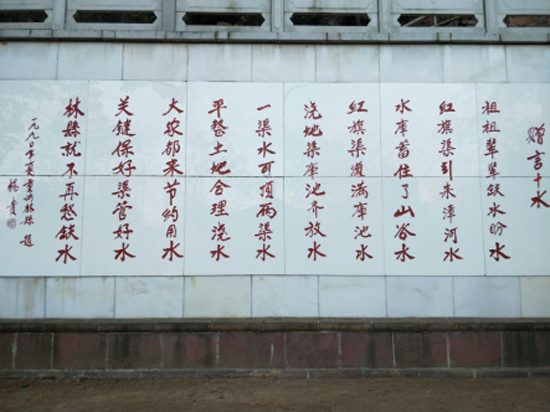 赠言十水
祖祖辈辈缺水盼水
红旗渠引来漳河水
水库蓄住了山谷水
红旗渠灌满库池水
浇地渠库池齐放水
一渠水可顶两渠水
平整土地合理浇水
大家都来节约用水
关键保好渠管好水
林县就不再愁缺水
一九九〇年夏重访林县 题
杨贵